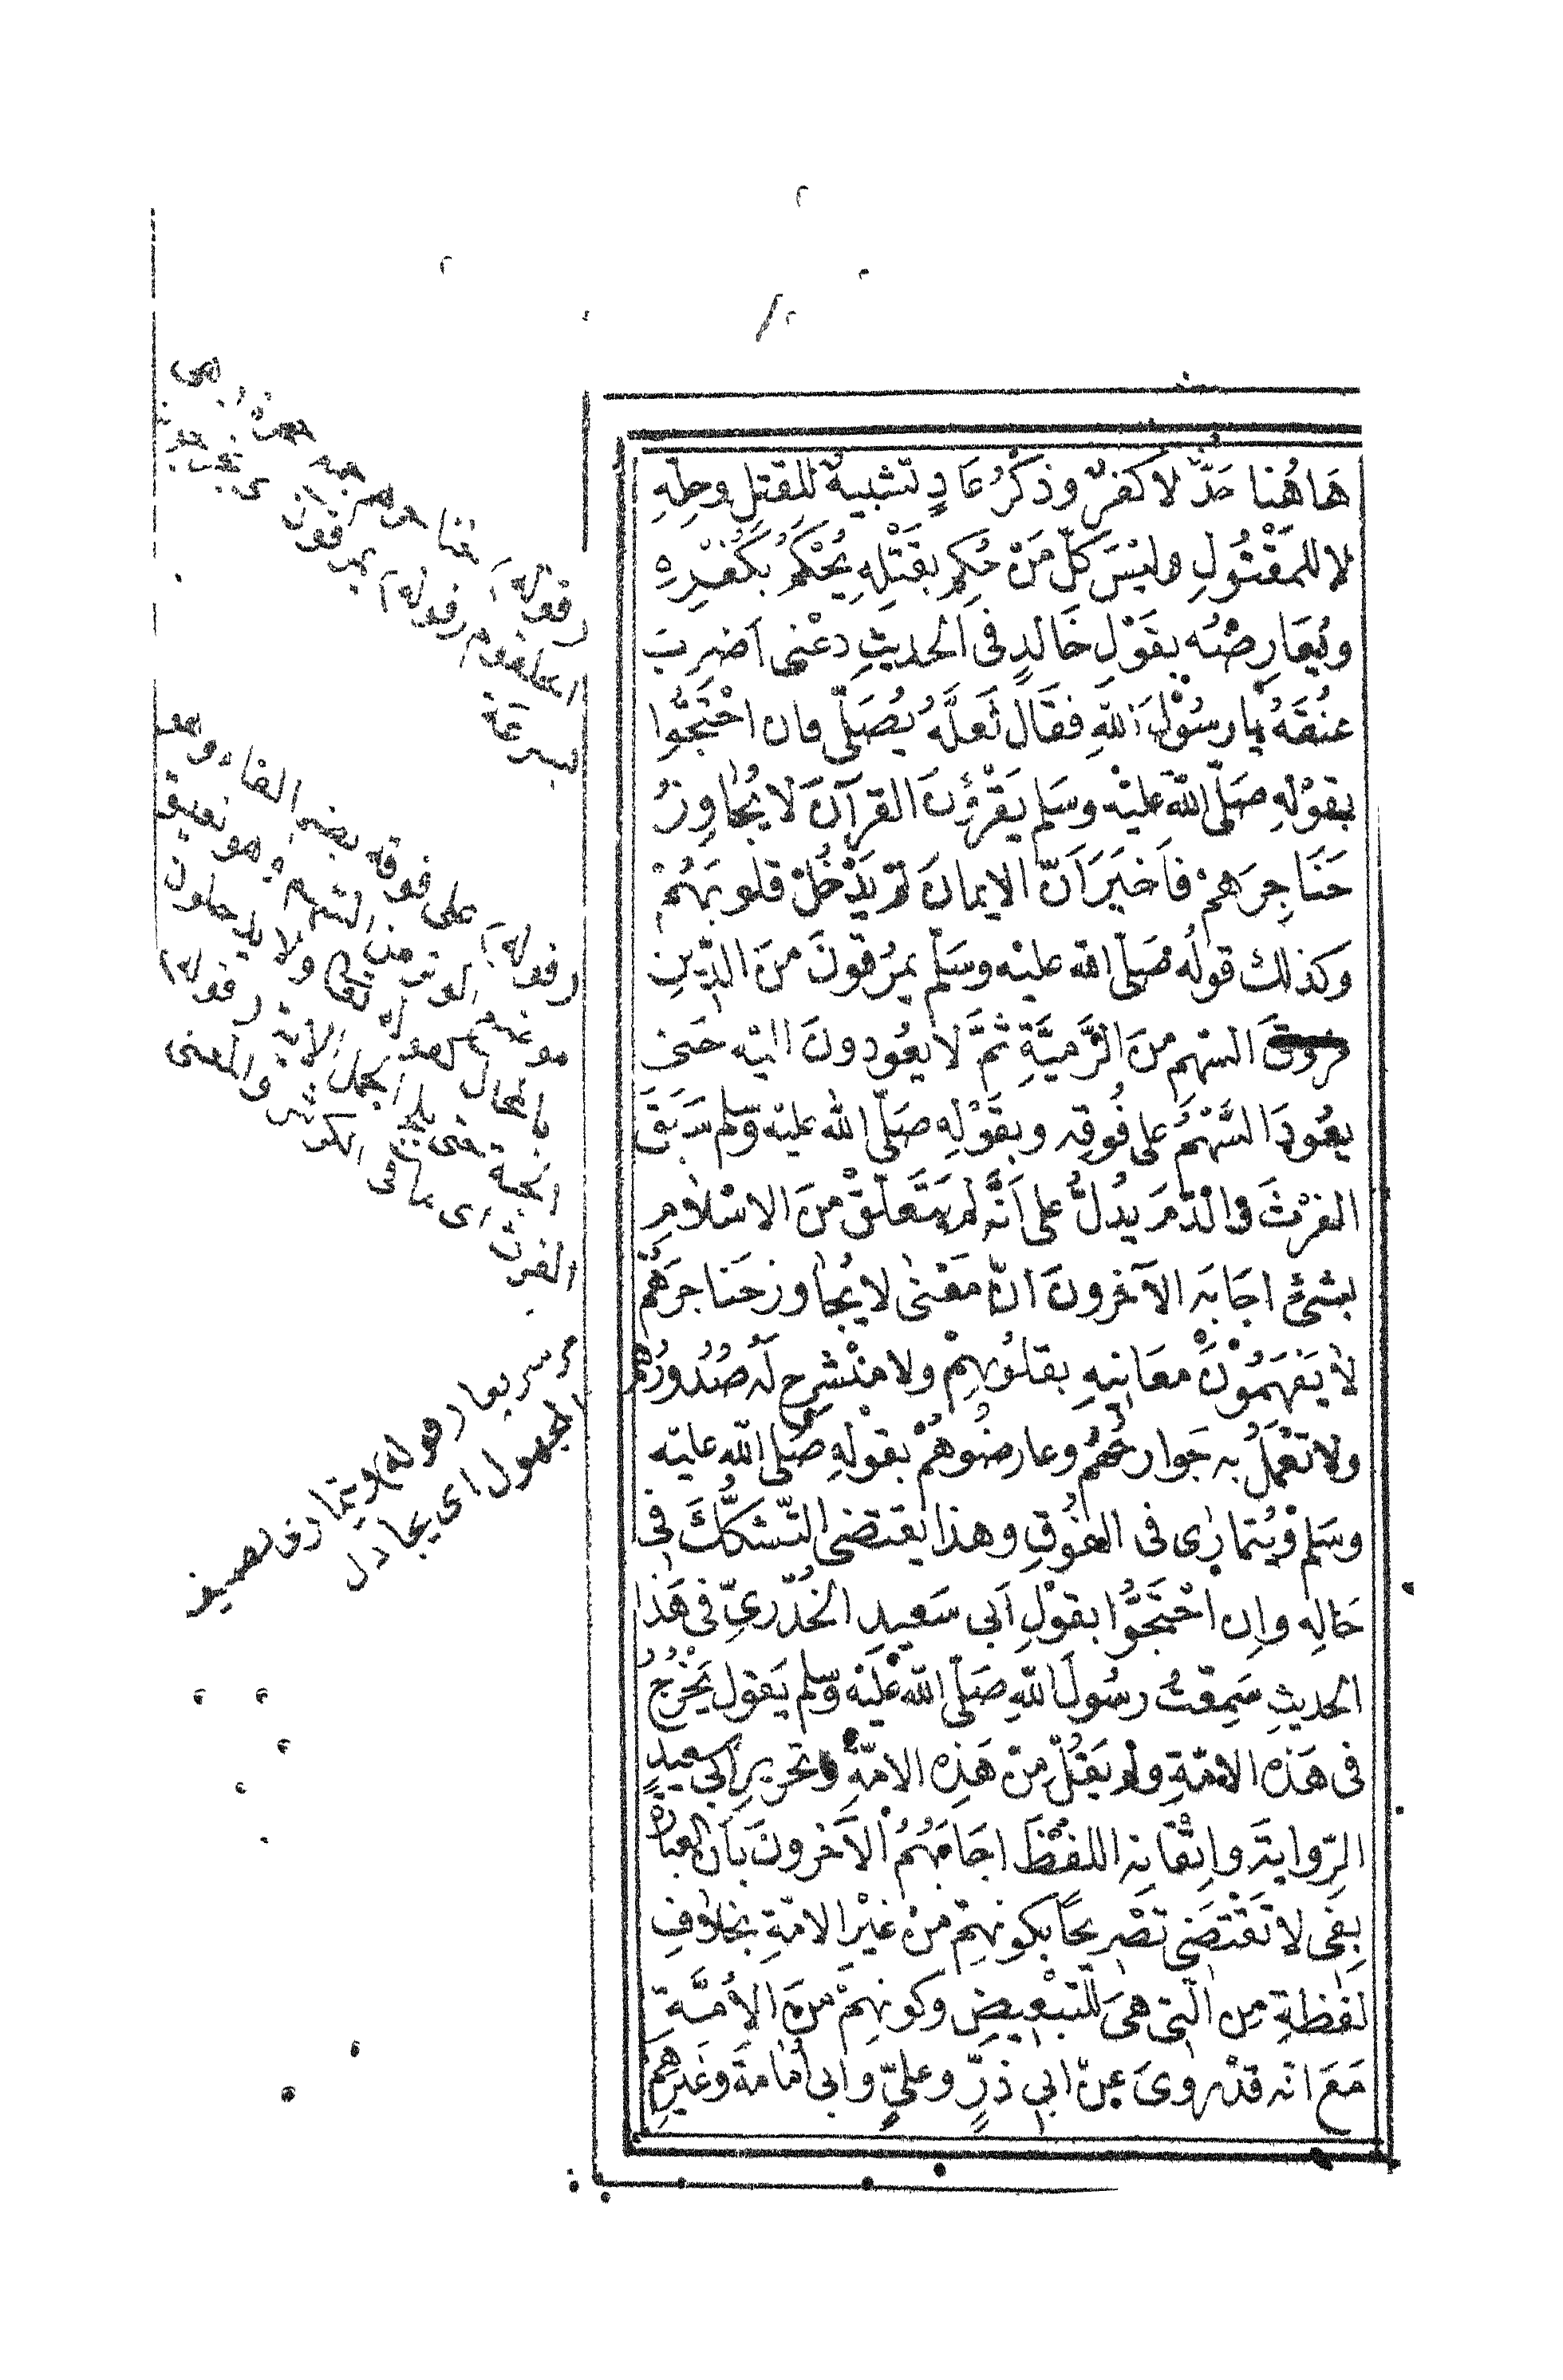 هَاهُنا حَدّ لا كفرٌ وذكْرُ عَادٍ تشبيهٌ للقتل وحِلِّهِ
لا للمقْتُولِ وليْسَ كلّ مَنْ حُكِم بقَتْلِهِ يُحْكَمُ بكُفْرِهِ
ويُعَارِضُه بقَوْلِ خَالدٍ فى الحديثِ دعْنى اَضْرِبَ
عنُقَهُ يا رسُوْلَ اللّهِ فقَالَ لَعَلَّهُ يُصَلّى فان احْتَجُّوا
بقوْلِهِ صَلّى اللّه عليْه وسَلم يَقْرَؤنَ القرآنَ لا يُجاوِزُ
حَنَاجِرَهمْ فاَخبَرَ اَنّ الايمانَ لمْ يَدْخُلْ قلوبَهُمْ
وكذلك قولُه صَلّى الله عليْه وسَلّم يمرُقونَ منَ الدّينِ
مروقَ السّهمِ منَ الرَّميَّةِ ثمَّ لا يعُودونَ اليْه حَتى
يعُودَ السَّهْمُ على فُوقِه وبقَوْلِهِ صَلّى اللّه عليْه وسلم سَبَقَ
الفرْثَ والدّمَ يدُلُّ على اَنَّه لم يتَعلقْ منَ الاسْلامِ
بشئٍ اجَابَه الآخرونَ انّ مَعْنى لا يُجاوز حَناجرَهُمْ
لا يَفهَمُوْنَ معَانيهِ بقلوُبِهمْ ولا منْشرِح لَه صُدُورُهم
ولا تعْمَلُ به جَوارحُهُم وعارضُوهُمْ بقولِهِ صَلى اللّه عليْه
وسَلم ويُتمارٰى فى الفُوقِ وهذا يقتضى التّشكُّكَ فى
حَالِهِ واِن احْتَجُّوا بقوْلِ اَبى سَعيدِ الخُدْرىِّ فى هَذا
الحديثِ سَمِعْتُ رسُولَ اللّهِ صَلّى اللّه عليْه وسلم يَقول يَخْرُجُ
فى هَذه الامّةِ ولم يَقُلْ مِنْ هَذِه الامّةِ وتحريرِ اَبى سعيدٍ
الرّوايةَ واِتْقانِه اللفْظَ اجَابَهُمُ الآخرونَ بانّ العبارة
بِفى لا تَقْتَضى تصْريحًا بكونهِمْ مِنْ غيْر الامّةِ بخلافِ
لفظةِ مِن الّتى هىَ للتّبْعيضِ وكونِهمْ منَ الاُمَّة
مَعَ انّه قدْ روىَ عنْ ابى ذرٍّ وعليٍّ وابى اُمامةَ وغَيرِهِم
بسرعة
(قوله على فوقه بضم الفاء وهو
موضع الوتر من السهم وهو تعليق
بالمحال كقوله تعالى ولا يدخلون
الجنة حتى يلج الجمل الاية (قوله
الفرث اى ما فى الكرش والمعنى
مرّ سريعا (قوله ويتمارى بصيغة
المجهول اى يجادل